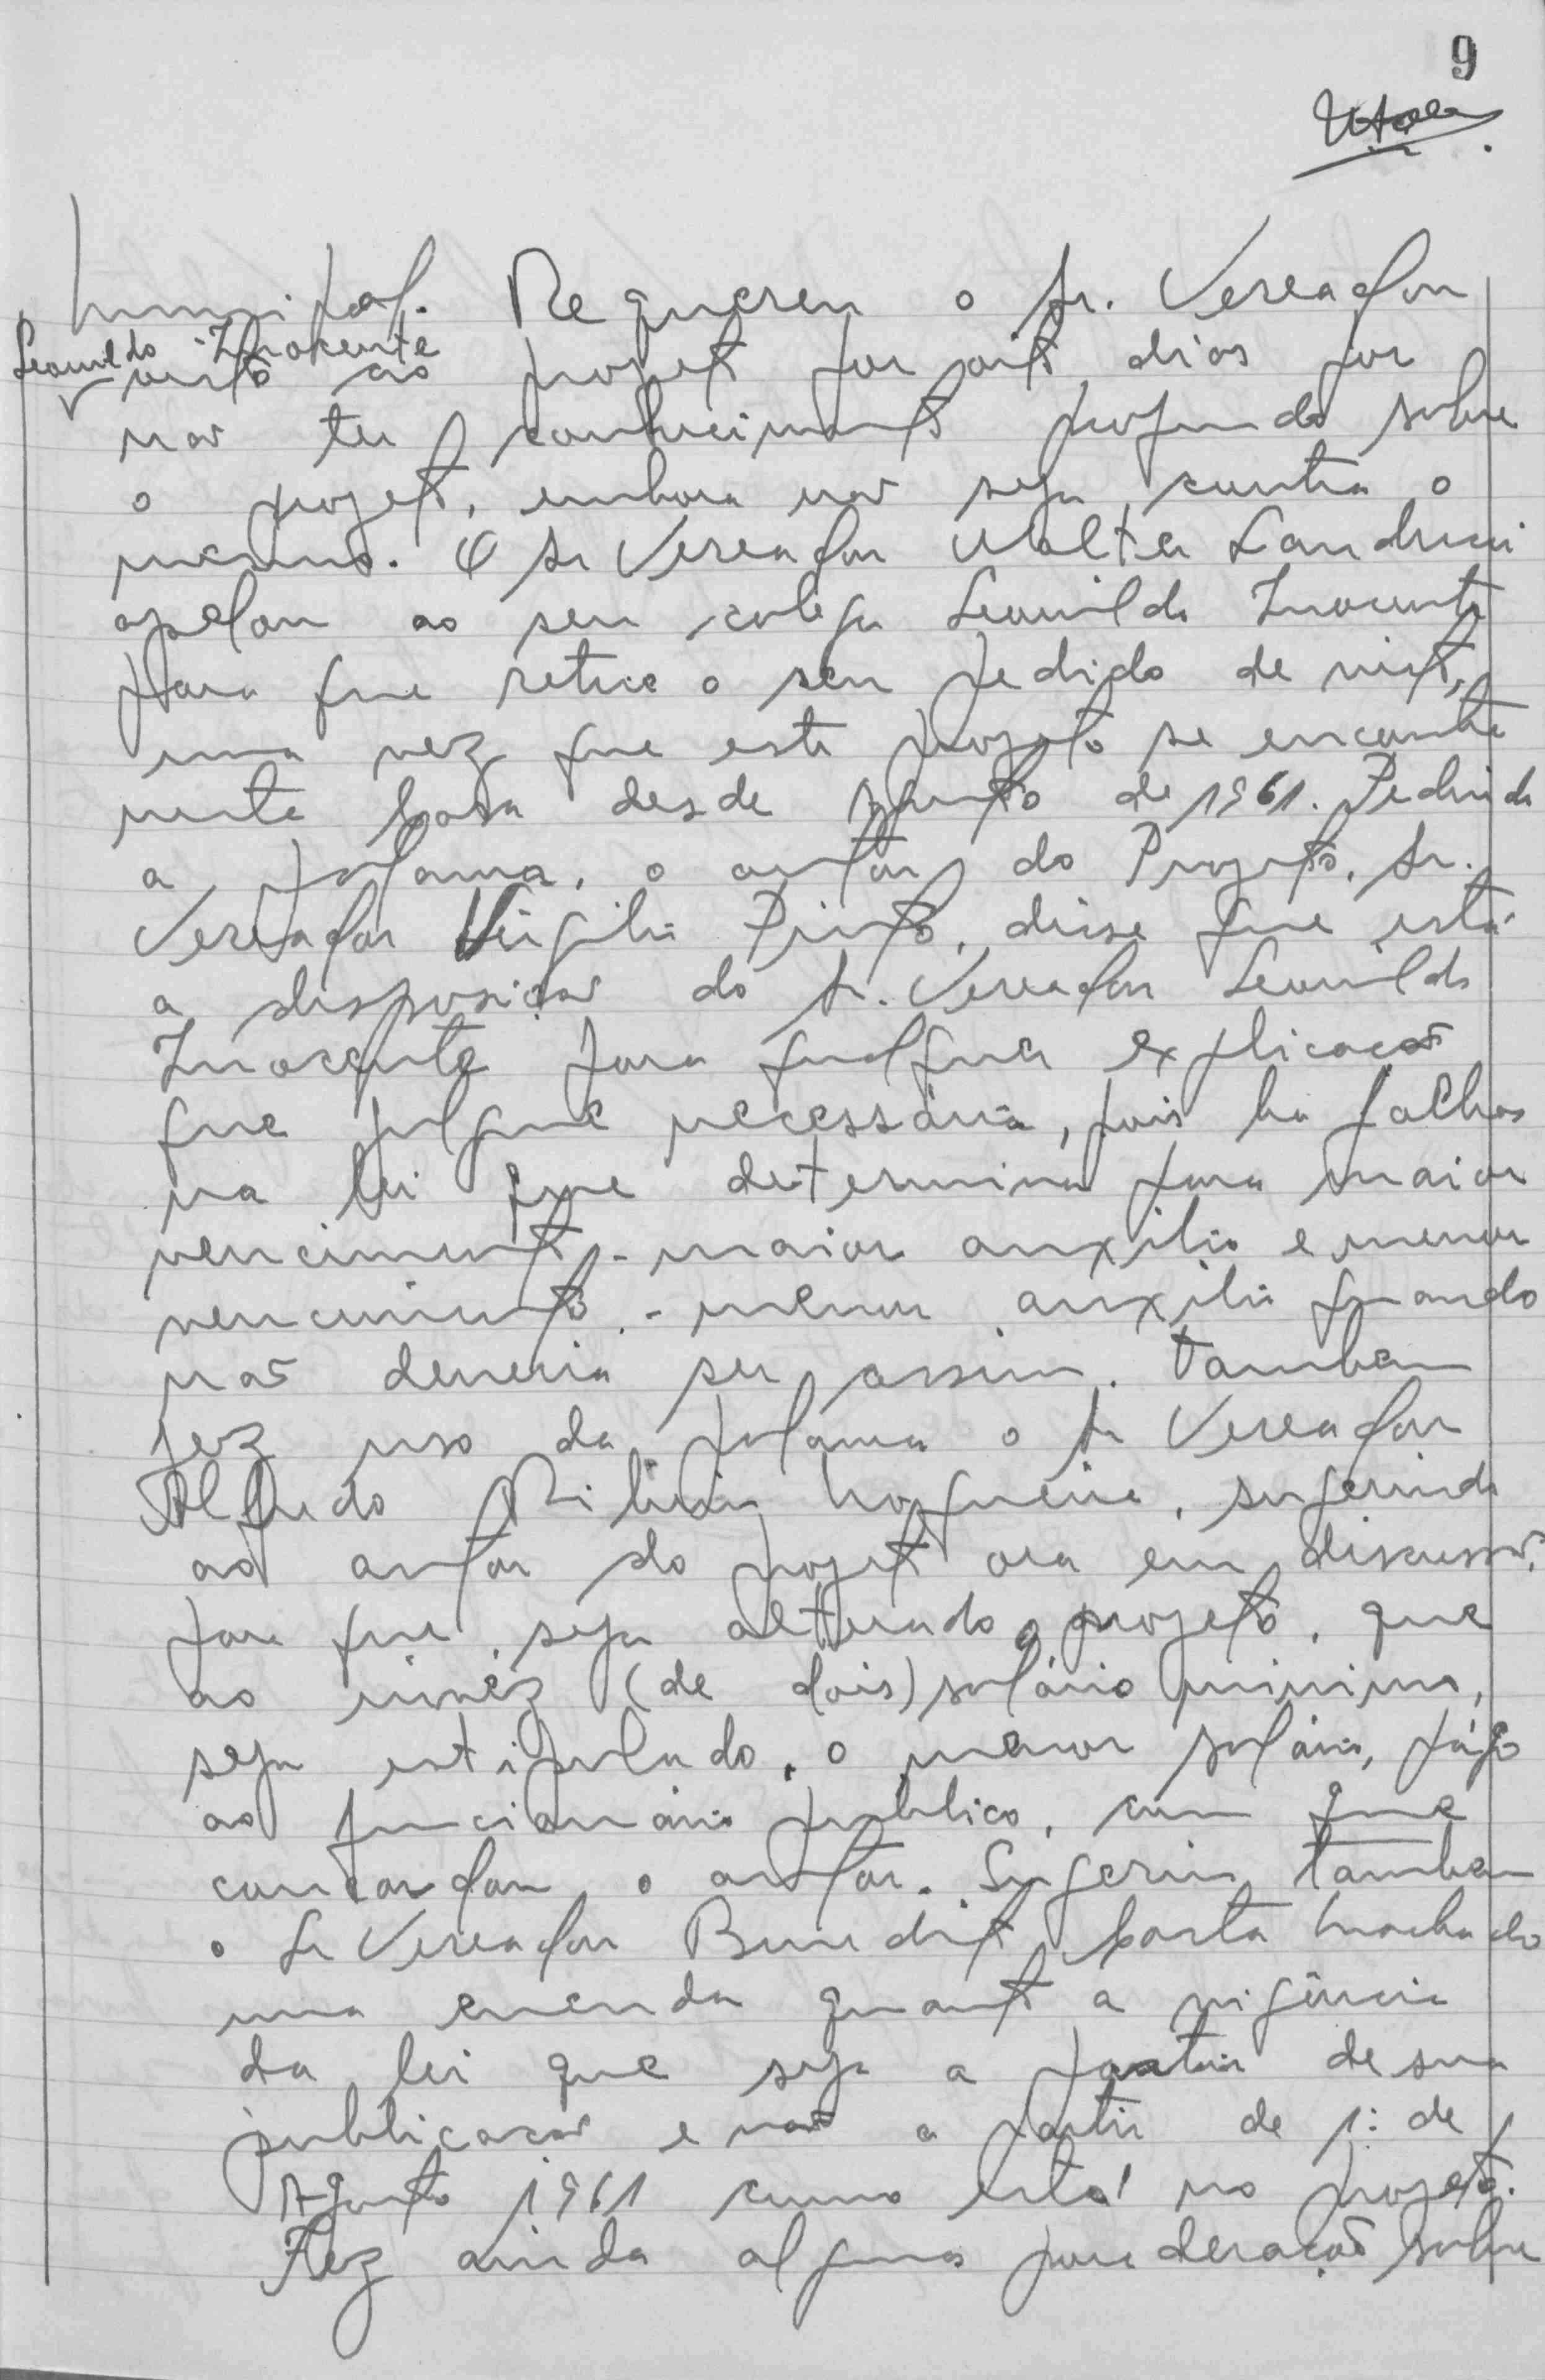 9
Municipal. Requereu o Sr. Vereador
Leonildo Inocente
visto ao projeto por oito dias por
não ter conhecimento profundo sobre
o projeto, embora não seja contra o
mesmo. O Sr Vereador Walter Landucci
apelou ao seu colega Leonildo Inocente
para que retire o seu pedido de visto,
uma vez que este projeto se encontra
nesta Casa desde Agosto de 1961. Pedindo
a palavra, o autor do Projeto, Sr.
Vereador Virgilio Pinto, disse que está
a disposição do Sr. Vereador Leonildo
Inocente para qualquer explicação
que julgue necessária, pois ha falhas
na lei que determina para maior
vencimento - maior auxilio e menor
vencimento - menor auxilio quando
não deveria ser assim. Tambem
fez uso da palavra o Sr Vereador
Alfredo Ribeiro Nogueira, sugerindo
ao autor do projeto ora em discussão,
para que seja alterado o projeto, que
ao invéz (de dois) salário minimo,
seja estipulado, o menor salário, págo
ao funcionário publico, com que
concordou o autor. Sugeriu tambem
o Sr Vereador Benedito Costa Machado
uma emenda quanto a vigência
da lei que seja a partir de sua
publicação e não a partir de 1º de
Agosto 1961 como está no projeto.
Fez ainda algumas ponderação sobre